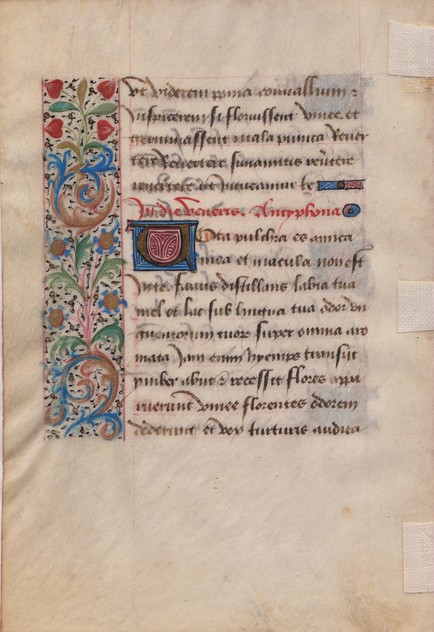 vt viderem poma conuallium ⁊
inspicerem si floruissent vinee et
germinassent mala punica Reuer
tere Reuertere sunamitis reuertere
reuertere ut intueamur te
In die veneris. Antyphona
Tota pulchra es amica
mea et macula non est
in te. Fauus distillans labia tua
mel et lac sub lingua tua odor vn
guentorum tuorum super omnia aro
mata Jam enim hyemps transijt
ymber abijt ⁊ recessit flores appa
ruerunt vinee florentes odorem
dederunt et vox turturis audita